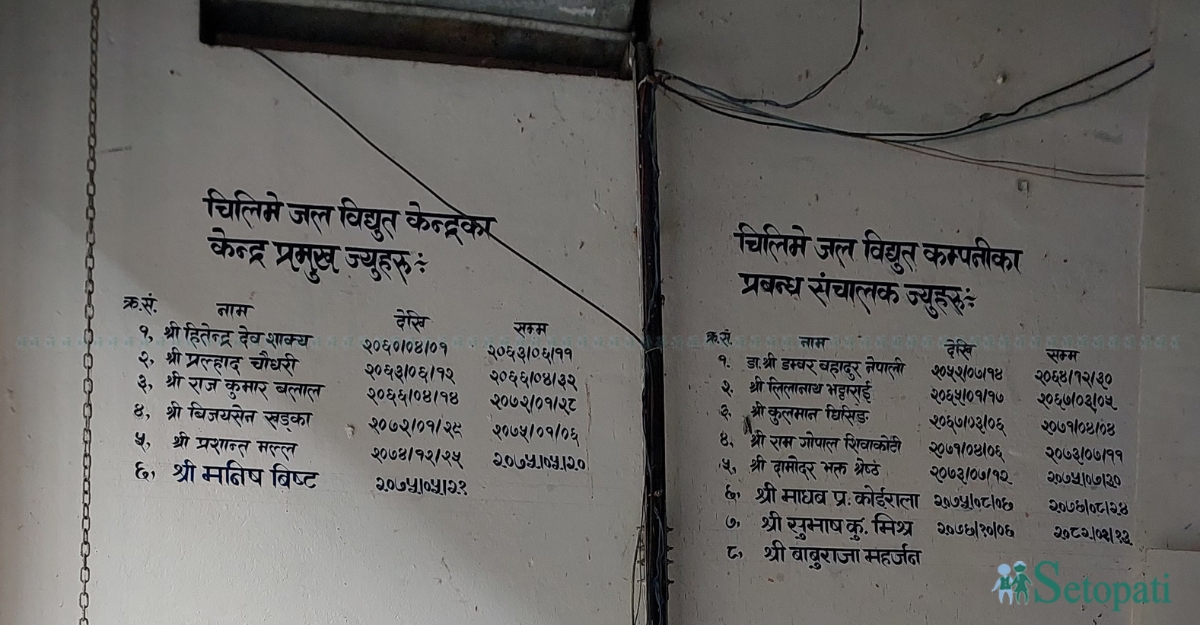 चिलिमे जल विद्युत केन्द्रका
केन्द्र प्रमुख ज्युहरुः
क्र.सं. नाम देखि सम्म
१, श्री हितेन्द्र देव शाक्य २०६०/०४/०१ २०६३/०६/११
२, श्री प्रल्हाद चौधरी २०६३/०६/१२ २०६६/०४/३२
३, श्री राज कुमार बलाल २०६६/०४/१४ २०७२/०१/२८
४, श्री बिजयसेन खड्का २०७२/०१/२९ २०७५/०१/०६
५, श्री प्रशान्त मल्ल २०७४/१२/२५ २०७५/०५/२०
६, श्री मनिष बिष्ट २०७५/०५/२१
चिलिमे जल विद्युत कम्पनीका
प्रबन्ध संचालक ज्युहरुः
क्र.सं. नाम देखि सम्म
१. डा.श्री डम्बर बहादुर नेपाली २०५२/०७/१४ २०६४/१२/३०
२. श्री लिलानाथ भट्टराई २०६५/०१/१७ २०६७/०३/०५
३. श्री कुलमान घिसिङ २०६७/०३/०६ २०७१/०४/०४
४. श्री राम गोपाल शिवाकोटी २०७१/०४/०६ २०७३/०७/११
५. श्री दामोदर भक्त श्रेष्ठ २०७३/०७/१२ २०७५/०७/३०
६, श्री माधव प्र. कोईराला २०७५/०८/०६ २०७६/०८/२४
७, श्री सुभाष कु. मिश्र २०७६/१०/०६ २०८२/०२/१३
८, श्री बाबुराजा महर्जन
Setopati